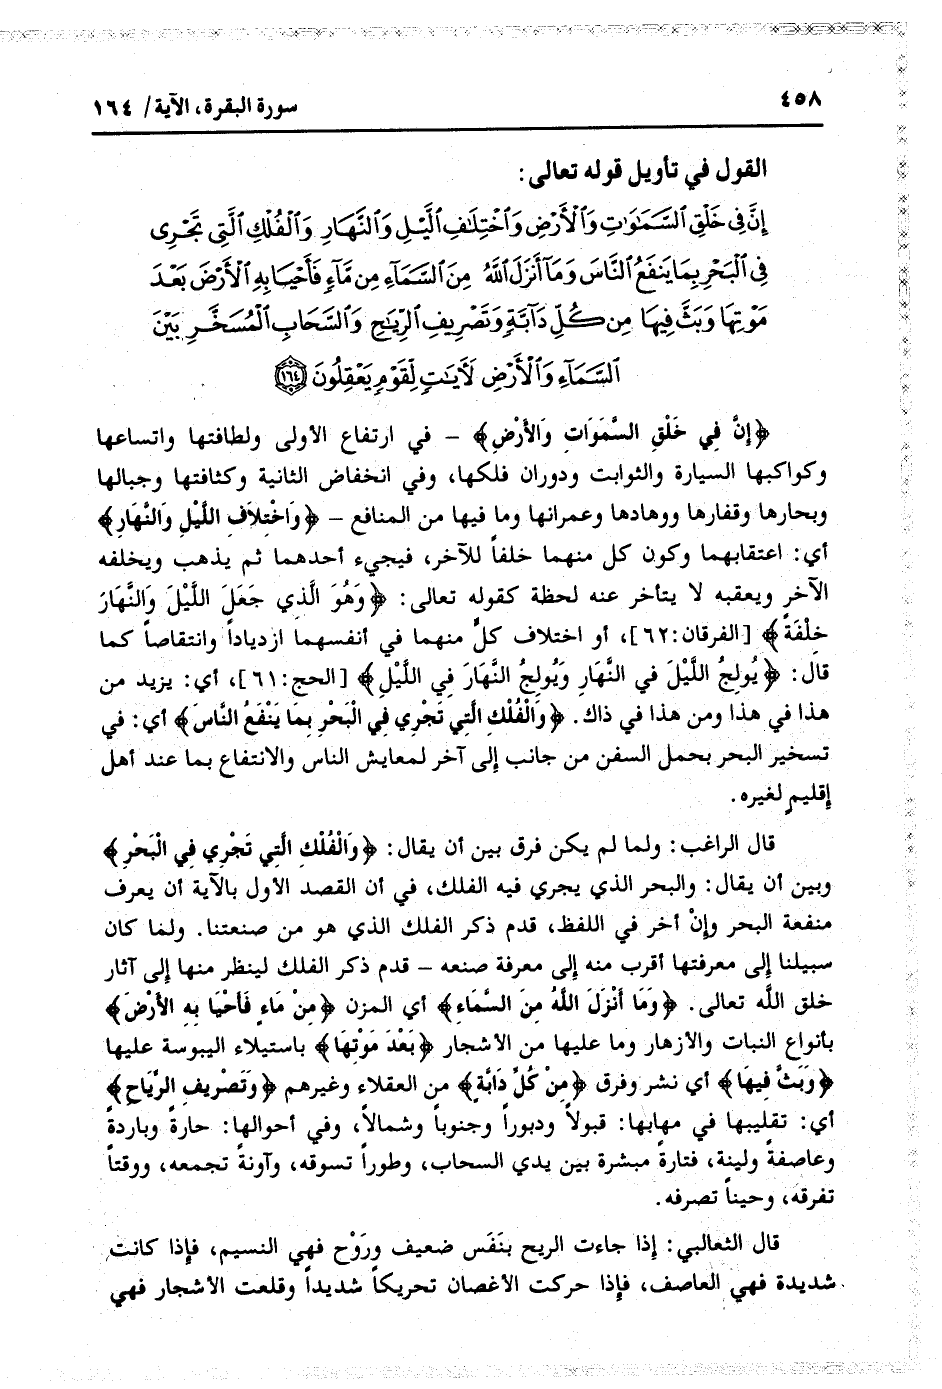 ٤٥٨
سورة البقرة، الآية/ ١٦٤
القول في تأويل قوله تعالى:
إِنَّ فِي خَلْقِ السَّمَٰوَٰتِ وَالْأَرْضِ وَاخْتِلَٰفِ الَّيْلِ وَالنَّهَارِ وَالْفُلْكِ الَّتِي تَجْرِي
فِي الْبَحْرِ بِمَا يَنفَعُ النَّاسَ وَمَا أَنزَلَ اللَّهُ مِنَ السَّمَاءِ مِن مَّاءٍ فَأَحْيَا بِهِ الْأَرْضَ بَعْدَ
مَوْتِهَا وَبَثَّ فِيهَا مِن كُلِّ دَابَّةٍ وَتَصْرِيفِ الرِّيَٰحِ وَالسَّحَابِ الْمُسَخَّرِ بَيْنَ
السَّمَاءِ وَالْأَرْضِ لَآيَٰتٍ لِّقَوْمٍ يَعْقِلُونَ ١٦٤
﴿إِنَّ فِي خَلْقِ السَّمَوَاتِ وَالأَرْضِ﴾ – في ارتفاع الأولى ولطافتها واتساعها
وكواكبها السيارة والثوابت ودوران فلكها، وفي انخفاض الثانية وكثافتها وجبالها
وبحارها وقفارها ووهادها وعمرانها وما فيها من المنافع – ﴿وَاخْتِلاَفِ اللَّيْلِ وَالنَّهَارِ﴾
أي: اعتقابهما وكون كل منهما خلفاً للآخر، فيجيء أحدهما ثم يذهب ويخلفه
الآخر ويعقبه لا يتأخر عنه لحظة كقوله تعالى: ﴿وَهُوَ الَّذِي جَعَلَ اللَّيْلَ وَالنَّهَارَ
خِلْفَةً﴾ [الفرقان:٦٢]، أو اختلاف كلٍّ منهما في أنفسهما ازدياداً وانتقاصاً كما
قال: ﴿يُولِجُ اللَّيْلَ فِي النَّهَارِ وَيُولِجُ النَّهَارَ فِي اللَّيْلِ﴾ [الحج:٦١]، أي: يزيد من
هذا في هذا ومن هذا في ذاك. ﴿وَالْفُلْكِ الَّتِي تَجْرِي فِي الْبَحْرِ بِمَا يَنْفَعُ النَّاسَ﴾ أي: في
تسخير البحر بحمل السفن من جانب إلى آخر لمعايش الناس والانتفاع بما عند أهل
إقليمٍ لغيره.
قال الراغب: ولما لم يكن فرق بين أن يقال: ﴿وَالْفُلْكِ الَّتِي تَجْرِي فِي الْبَحْرِ﴾
وبين أن يقال: والبحر الذي يجري فيه الفلك، في أن القصد الأول بالآية أن يعرف
منفعة البحر وإنْ أخر في اللفظ، قدم ذكر الفلك الذي هو من صنعتنا. ولما كان
سبيلنا إلى معرفتها أقرب منه إلى معرفة صنعه – قدم ذكر الفلك لينظر منها إلى آثار
خلق اللَّه تعالى. ﴿وَمَا أَنْزَلَ اللَّهُ مِنَ السَّمَاءِ﴾ أي المزن ﴿مِنْ مَاءٍ فَأَحْيَا بِهِ الأَرْضَ﴾
بأنواع النبات والأزهار وما عليها من الأشجار ﴿بَعْدَ مَوْتِهَا﴾ باستيلاء اليبوسة عليها
﴿وَبَثَّ فِيهَا﴾ أي نشر وفرق ﴿مِنْ كُلِّ دَابَّةٍ﴾ من العقلاء وغيرهم ﴿وَتَصْرِيفِ الرِّيَاحِ﴾
أي: تقليبها في مهابها: قبولاً ودبوراً وجنوباً وشمالاً، وفي أحوالها: حارةً وباردةً
وعاصفةً ولينة، فتارةً مبشرة بين يدي السحاب، وطوراً تسوقه، وآونةً تجمعه، ووقتاً
تفرقه، وحيناً تصرفه.
قال الثعالبي: إذا جاءت الريح بنَفَس ضعيف ورَوْح فهي النسيم، فإذا كانت
شديدة فهي العاصف، فإذا حركت الأغصان تحريكاً شديداً وقلعت الأشجار فهي